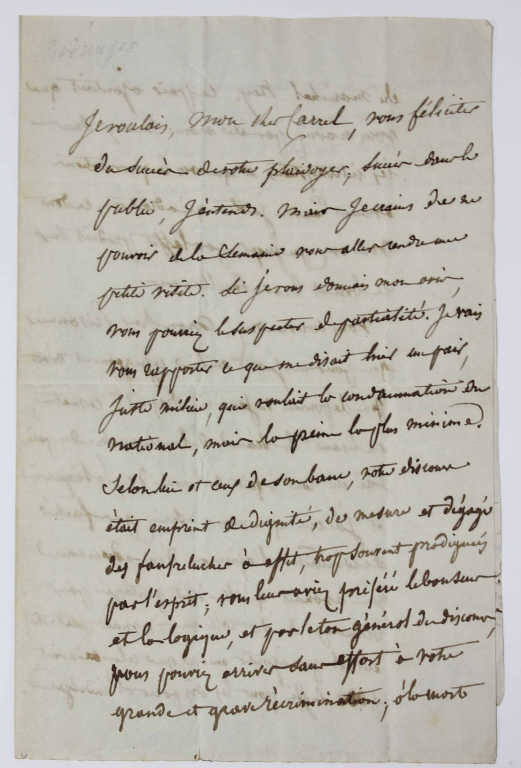 Je voulais, mon cher Carrel, vous féliciter
du succès de votre plaidoyer; succès dans le
public, j'entends. Mais je crains de ne
pouvoir de la semaine vous aller rendre une
petite visite. Si je vous donnais mon avis,
vous pourriez le suspecter de partialité. Je vais
vous rapporter ce que me disait hier un pair,
juste milieu, qui voulait la condamnation du
National, mais la peine la plus minime.
Selon lui et ceux de son banc, votre discours
était empreint de dignité, de mesure et dégagé
des fanfreluches à effet, trop souvent prodiguées
par l'esprit; vous leur aviez préféré le bon sens
et la logique, et par le ton général du discours,
vous pouviez arriver sans effort à votre
grande et grave récrimination, à la mort